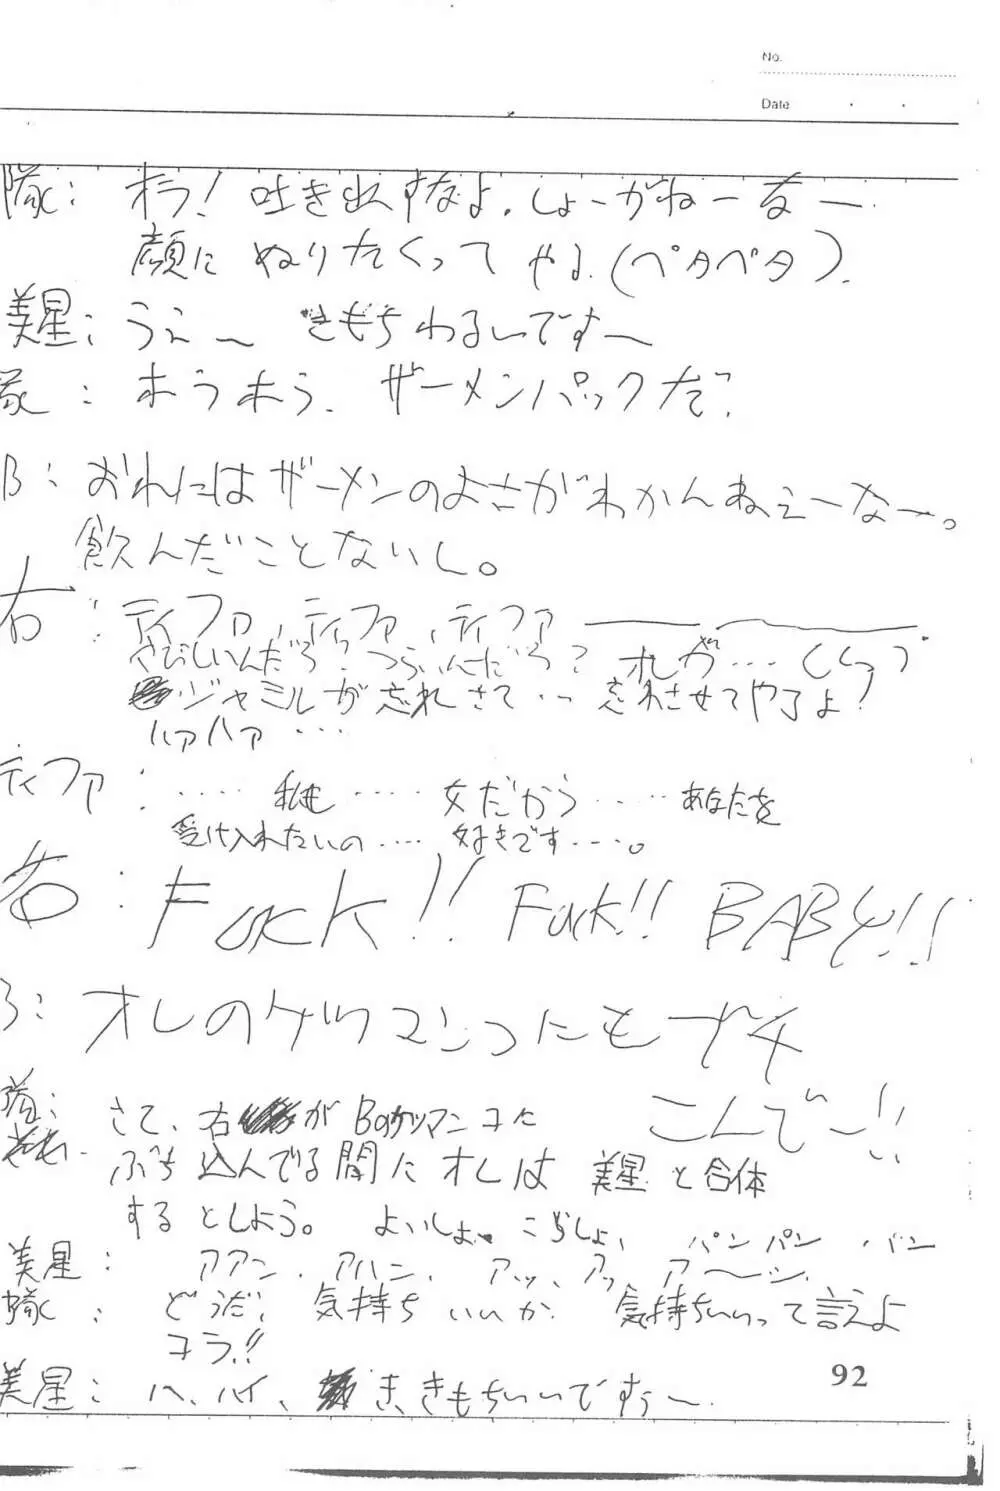 No.
Date
隊: オラ!吐き出すなよ。しょーがねーなー
顔にぬりたくってやる。(ペタペタ)。
美星: うぇ〜 きもちわるいですー
隊: ホウホウ、ザーメンパックだ?
B: おれにはザーメンのよさがわかんねぇーなー。
飲んだことないし。
右: ティファ、ティファ、ティファ
さびしいんだろ?つらいんだろ?オレが…
ジャミルが忘れさせて…っ 忘れさせてやるよ!
ハァハァ…
ティファ: …… 私も …… 女だから …… あなたを
受け入れたいの …… 好きです ……。
右: Fuck!! Fuck!! BABY!!
B: オレのケツマンコにもブチ
こんでー!!
隊: さて、右がBのケツマンコに
ぶち込んでる間にオレは美星と合体
するとしよう。よいしょ、こらしょ、パンパンパン
美星: アアン、アハン、アッ、アッ、ア〜ン、
隊: どうだ、気持ちいいか、気持ちいいって言えよ
コラ!!
美星: ハ、ハイ、き、きもちいいですぅ〜
92